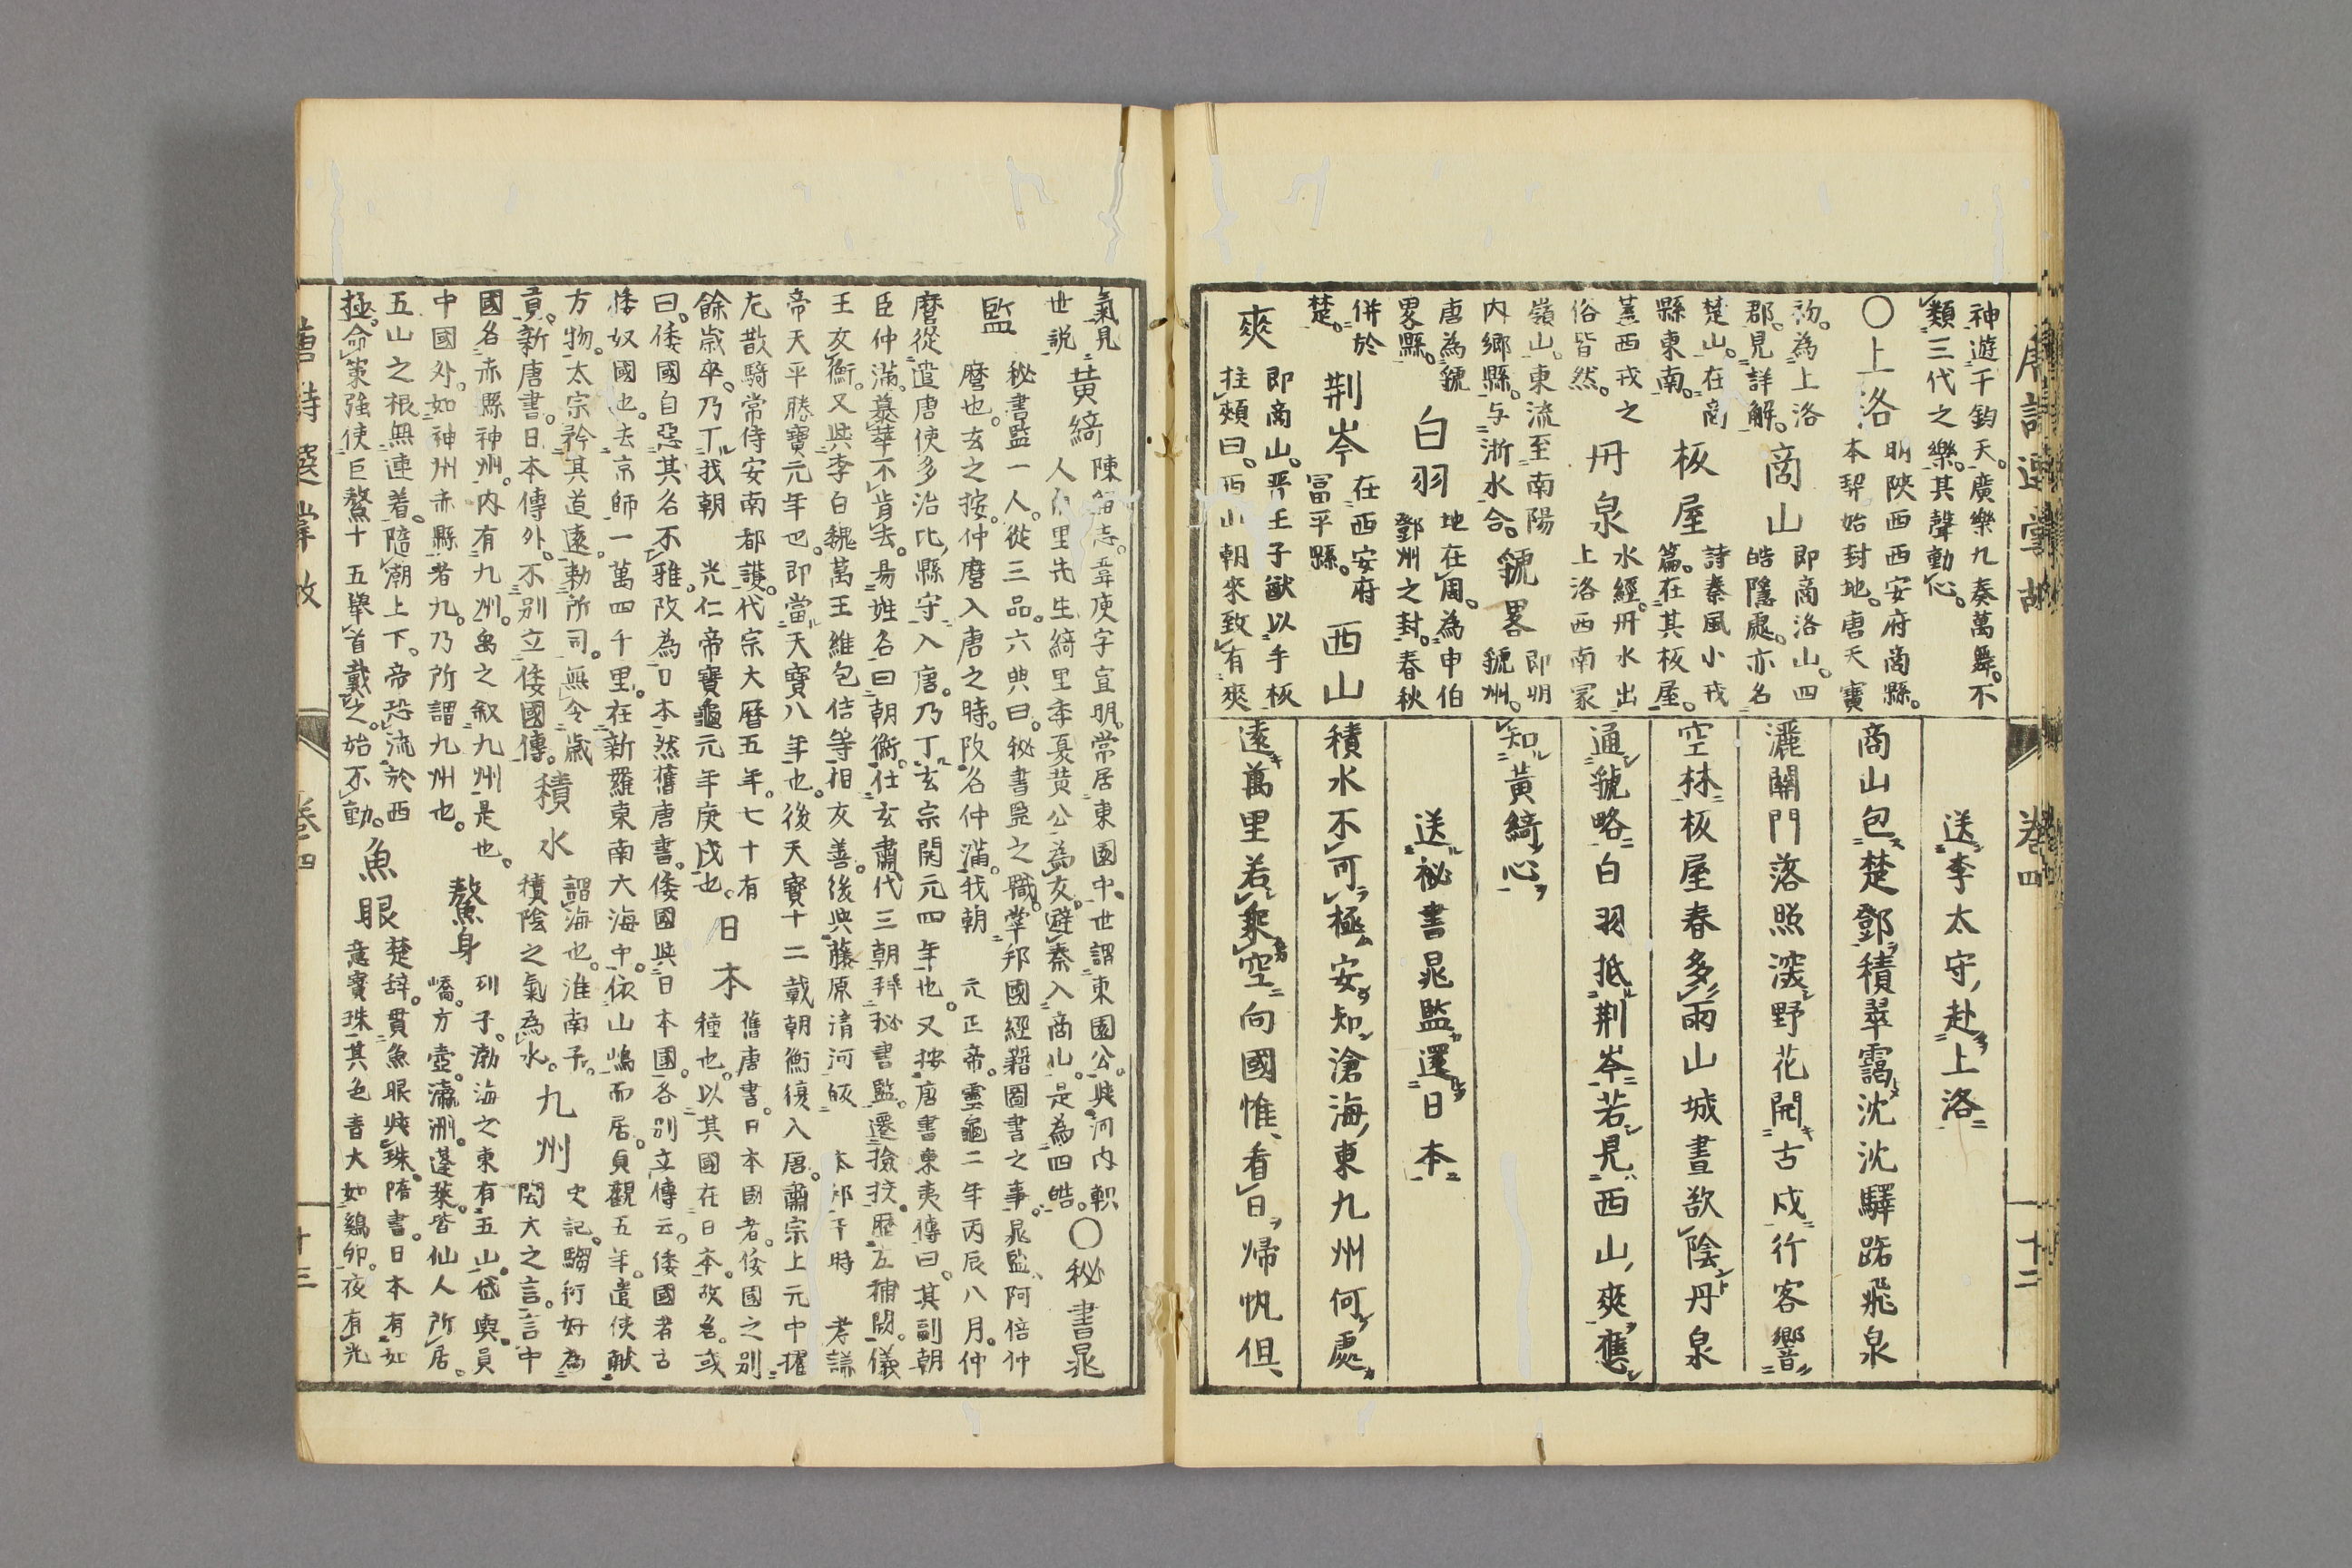 唐詩選掌故
卷四
十二
神遊千鈞天。廣樂九奏萬舞。不
類三代之樂。其聲動心。
○上洛
明陝西西安府商縣。
本契始封地。唐天寶
初。為上洛
郡。見詳解。
商山
即商洛山。四
皓隱處。亦名
楚山。在商
縣東南。
板屋
詩秦風小戎
篇。在其板屋。
蓋西戎之
俗皆然。
丹泉
水經。丹水出
上洛西南冢
嶺山。東流至南陽
内鄉縣。与淅水合。
虢畧
即明
虢州。
唐為虢
畧縣。
白羽
地在周。為申伯
鄧州之封。春秋
併於
楚。
荆岑
在西安府
冨平縣。
西山
即商山。晋王子猷以手板
拄頰曰。西山朝來致有爽
爽
送李太守赴上洛
商山包楚鄧積翠靄沈沈驛路飛泉
灑關門落照深野花開古戍行客響
空林板屋春多雨山城晝欲陰丹泉
通虢略白羽抵荆岑若見西山爽應
知黃綺心
送祕書晁監還日本
積水不可極安知滄海東九州何處
遠萬里若乘空向國惟看日歸帆但
氣見
世説
黃綺
陳留志。韋庾字宣明。常居東園中。世謂東園公。與河内軹
人角里先生綺里季夏黄公為友。避秦入商山。是為四皓。
○秘書晁
監
秘書監一人。從三品。六典曰。秘書監之職。掌邦國經籍圖書之事。晁監。阿倍仲
麿也。玄之按。仲麿入唐之時。改名仲滿。我朝 元正帝。靈龜二年丙辰八月。仲
麿從遣唐使多治比縣守入唐。乃丁玄宗開元四年也。又按。唐書東夷傳曰。其副朝
臣仲滿。慕華不肯去。易姓名曰朝衡。仕玄肅代三朝。拜秘書監。遷撿挍。歷左補闕。儀
王友衡。又與李白魏萬王維包佶等相友善。後與藤原清河皈 本邦于時 孝謙
帝天平勝寶元年也。即當天寶八年也。後天寶十二載朝衡復入唐。肅宗上元中擢
左散騎常侍安南都護。代宗大曆五年。七十有
餘歳卒。乃丁我朝 光仁帝寶龜元年庚戌也。
日本
舊唐書。日本國者。倭國之別
種也。以其國在日本。故名。或
曰。倭國自惡其名不雅。改為日本。然舊唐書。倭國與日本國。各別立傳云。倭國者古
倭奴國也。去京師一萬四千里。在新羅東南大海中。依山嶋而居。貞觀五年。遣使献
方物。太宗矜其道遠。勅所司。無令歳
貢。新唐書。日本傳外。不別立倭國傳。
積水
謂海也。淮南子。
積陰之氣為水。
九州
史記。騶衍好為
閎大之言。言中
國名赤縣神州。内有九州。禹之叙九州是也。
中國外。如神州赤縣者九。乃所謂九州也。
鰲身
列子。渤海之東有五山。岱輿。員
嶠。方壺。瀛洲。蓬萊。皆仙人所居。
五山之根無連着。隨潮上下。帝恐流於西
極。命策強使巨鰲十五舉首戴之。始不動。
魚眼
楚辞。貫魚眼與珠。隋書。日本有如
意寳珠。其色青大如鷄卵。夜有光
唐詩選掌故
卷四
十三